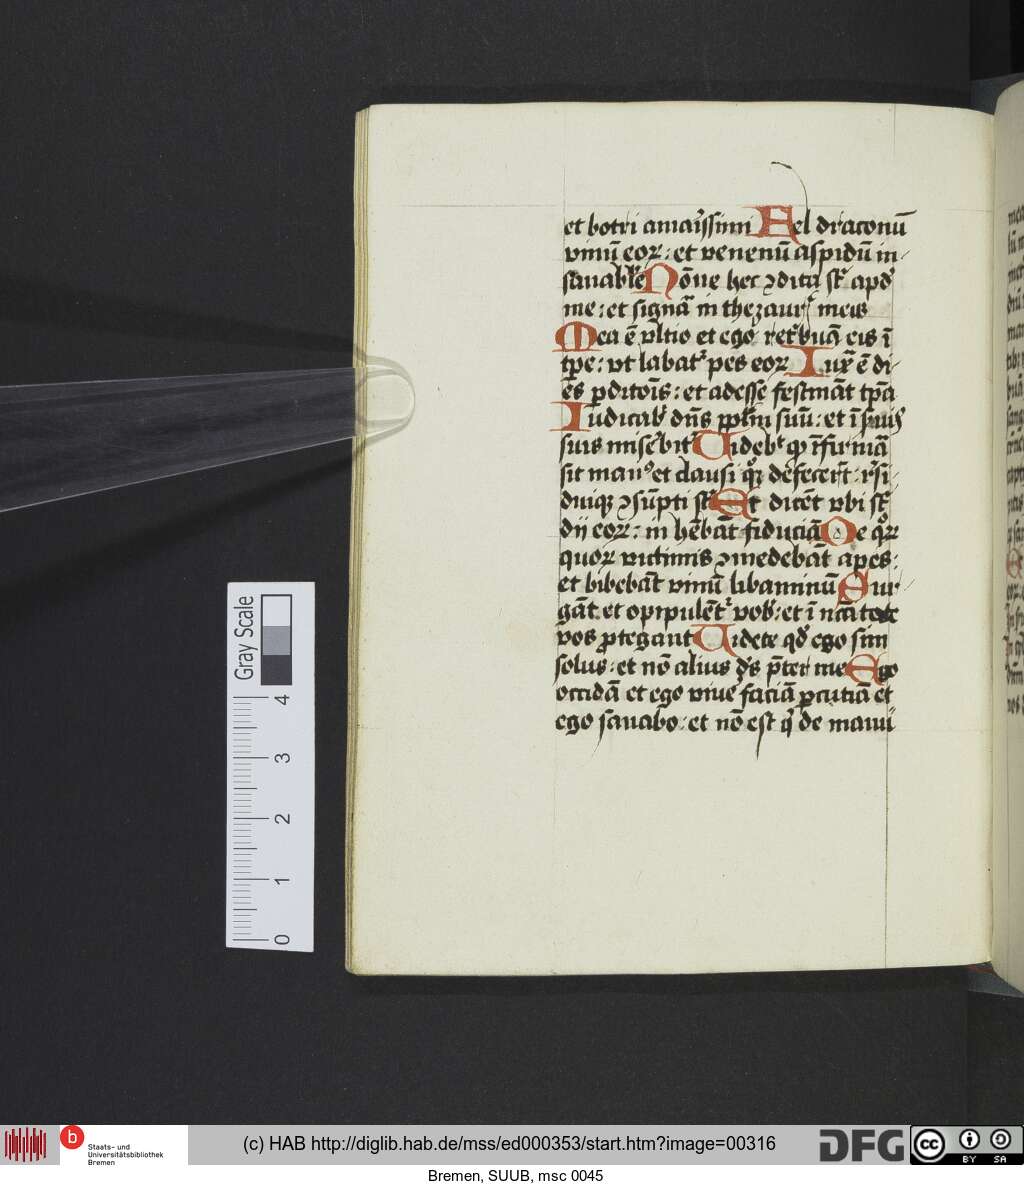 et botri amarissimi Fel draconū
vinū eoꝝ : et venenū aspidū in-
sanabˡle Nōne hec ꝯdita sͭ apd̕
me : et signāͣ in thezaurꝭ meis
Mea ē vˡtio et ego retͥbuā eis ī
tꝑe : vt labatᷣ pes eoꝝ Iuxͣ ē di-
ēs ꝑditōis : et adesse festinātͭ tꝑa
Iudicabͭ dn̄s ppl̄m suū : et ī ẜuis
suis miseͤbitᷣ Videbͭ qꝫ īfirmāͣ
sit manꝰ et clausi qͦꝫ defecerūt : rͤsi-
duiqꝫ ꝯsūpti sͭ Et dicēt vbi sͭ
dij eoꝝ : in hēbāt fiduciā De qͦꝝ
quoꝝ victimis ꝯmedebāt apes :
et bibebāt vinū libaminū Sur-
gāt et opipulētᷣ vob̕ : et ī ncc̄itate
vos ꝓtegant Videte qd̕ ego sim
solus : et nō alius dꝰs p̄ter me Ego
occidā et ego viueͤ faciā ꝑcutiā et
ego sanabo : et nō est qͥ de manu
Gray Scale
4
3
2
1
0
b Staats- und
Universitätsbibliothek
Bremen
(c) HAB http://diglib.hab.de/mss/ed000353/start.htm?image=00316
DFG
cc BY SA
Bremen, SUUB, msc 0045